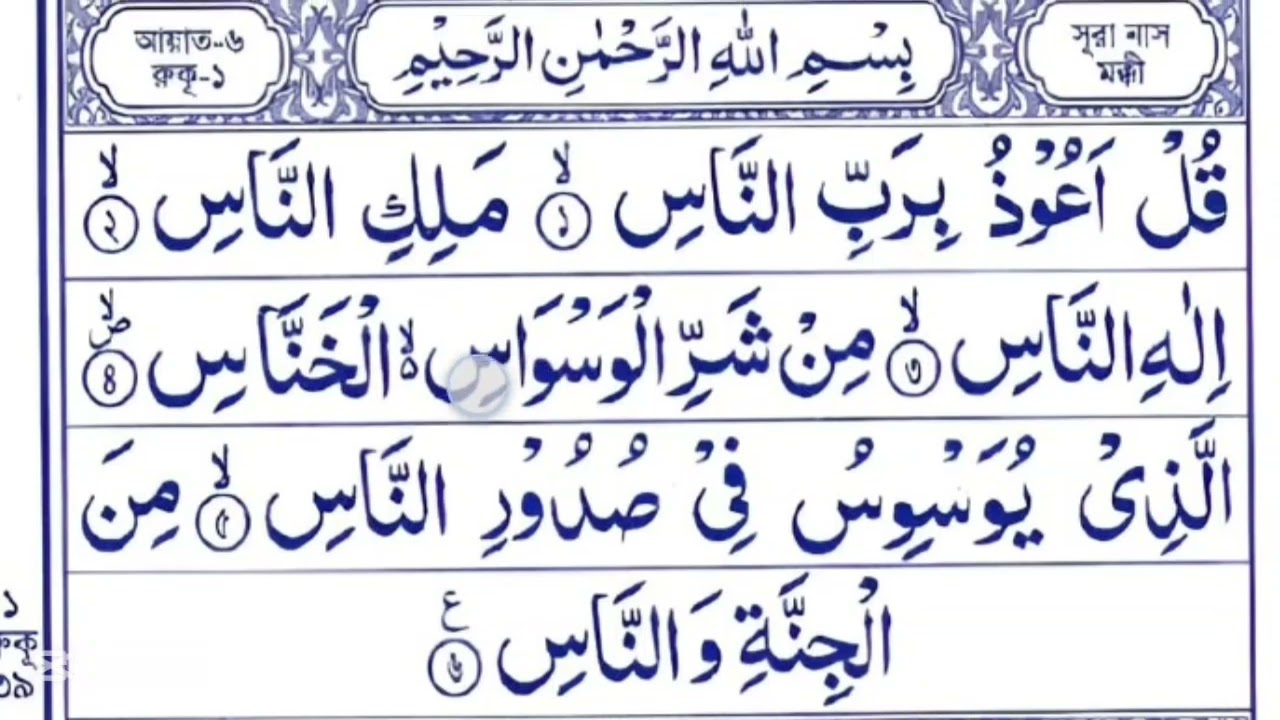 সূরা নাস
মক্কী
بِسْمِ اللّٰهِ الرَّحْمٰنِ الرَّحِيْمِ
আয়াত-৬
রুকূ-১
قُلْ اَعُوْذُ بِرَبِّ النَّاسِ ۙ﴿١﴾ مَلِكِ النَّاسِ ۙ﴿٢﴾
اِلٰهِ النَّاسِ ۙ﴿٣﴾ مِنْ شَرِّ الْوَسْوَاسِ ۙ۬ الْخَنَّاسِ ۪ۙ﴿٤﴾
الَّذِىْ يُوَسْوِسُ فِىْ صُدُوْرِ النَّاسِ ۙ﴿٥﴾ مِنَ
الْجِنَّةِ وَالنَّاسِ ﴿٦﴾ ع
১
রুকু
৩৯